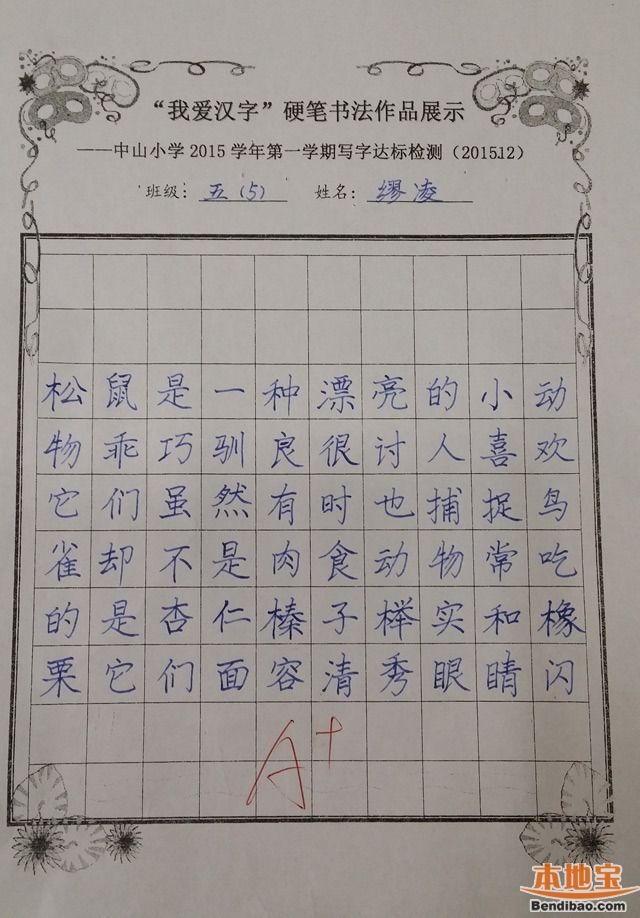 “我爱汉字”硬笔书法作品展示
——中山小学2015学年第一学期写字达标检测（2015.12）
班级：五（5） 姓名：缪凌
松鼠是一种漂亮的小动
物乖巧驯良很讨人喜欢
它们虽然有时也捕捉鸟
雀却不是肉食动物常吃
的是杏仁榛子榉实和橡
栗它们面容清秀眼睛闪
A+
本地宝
Bendibao.com